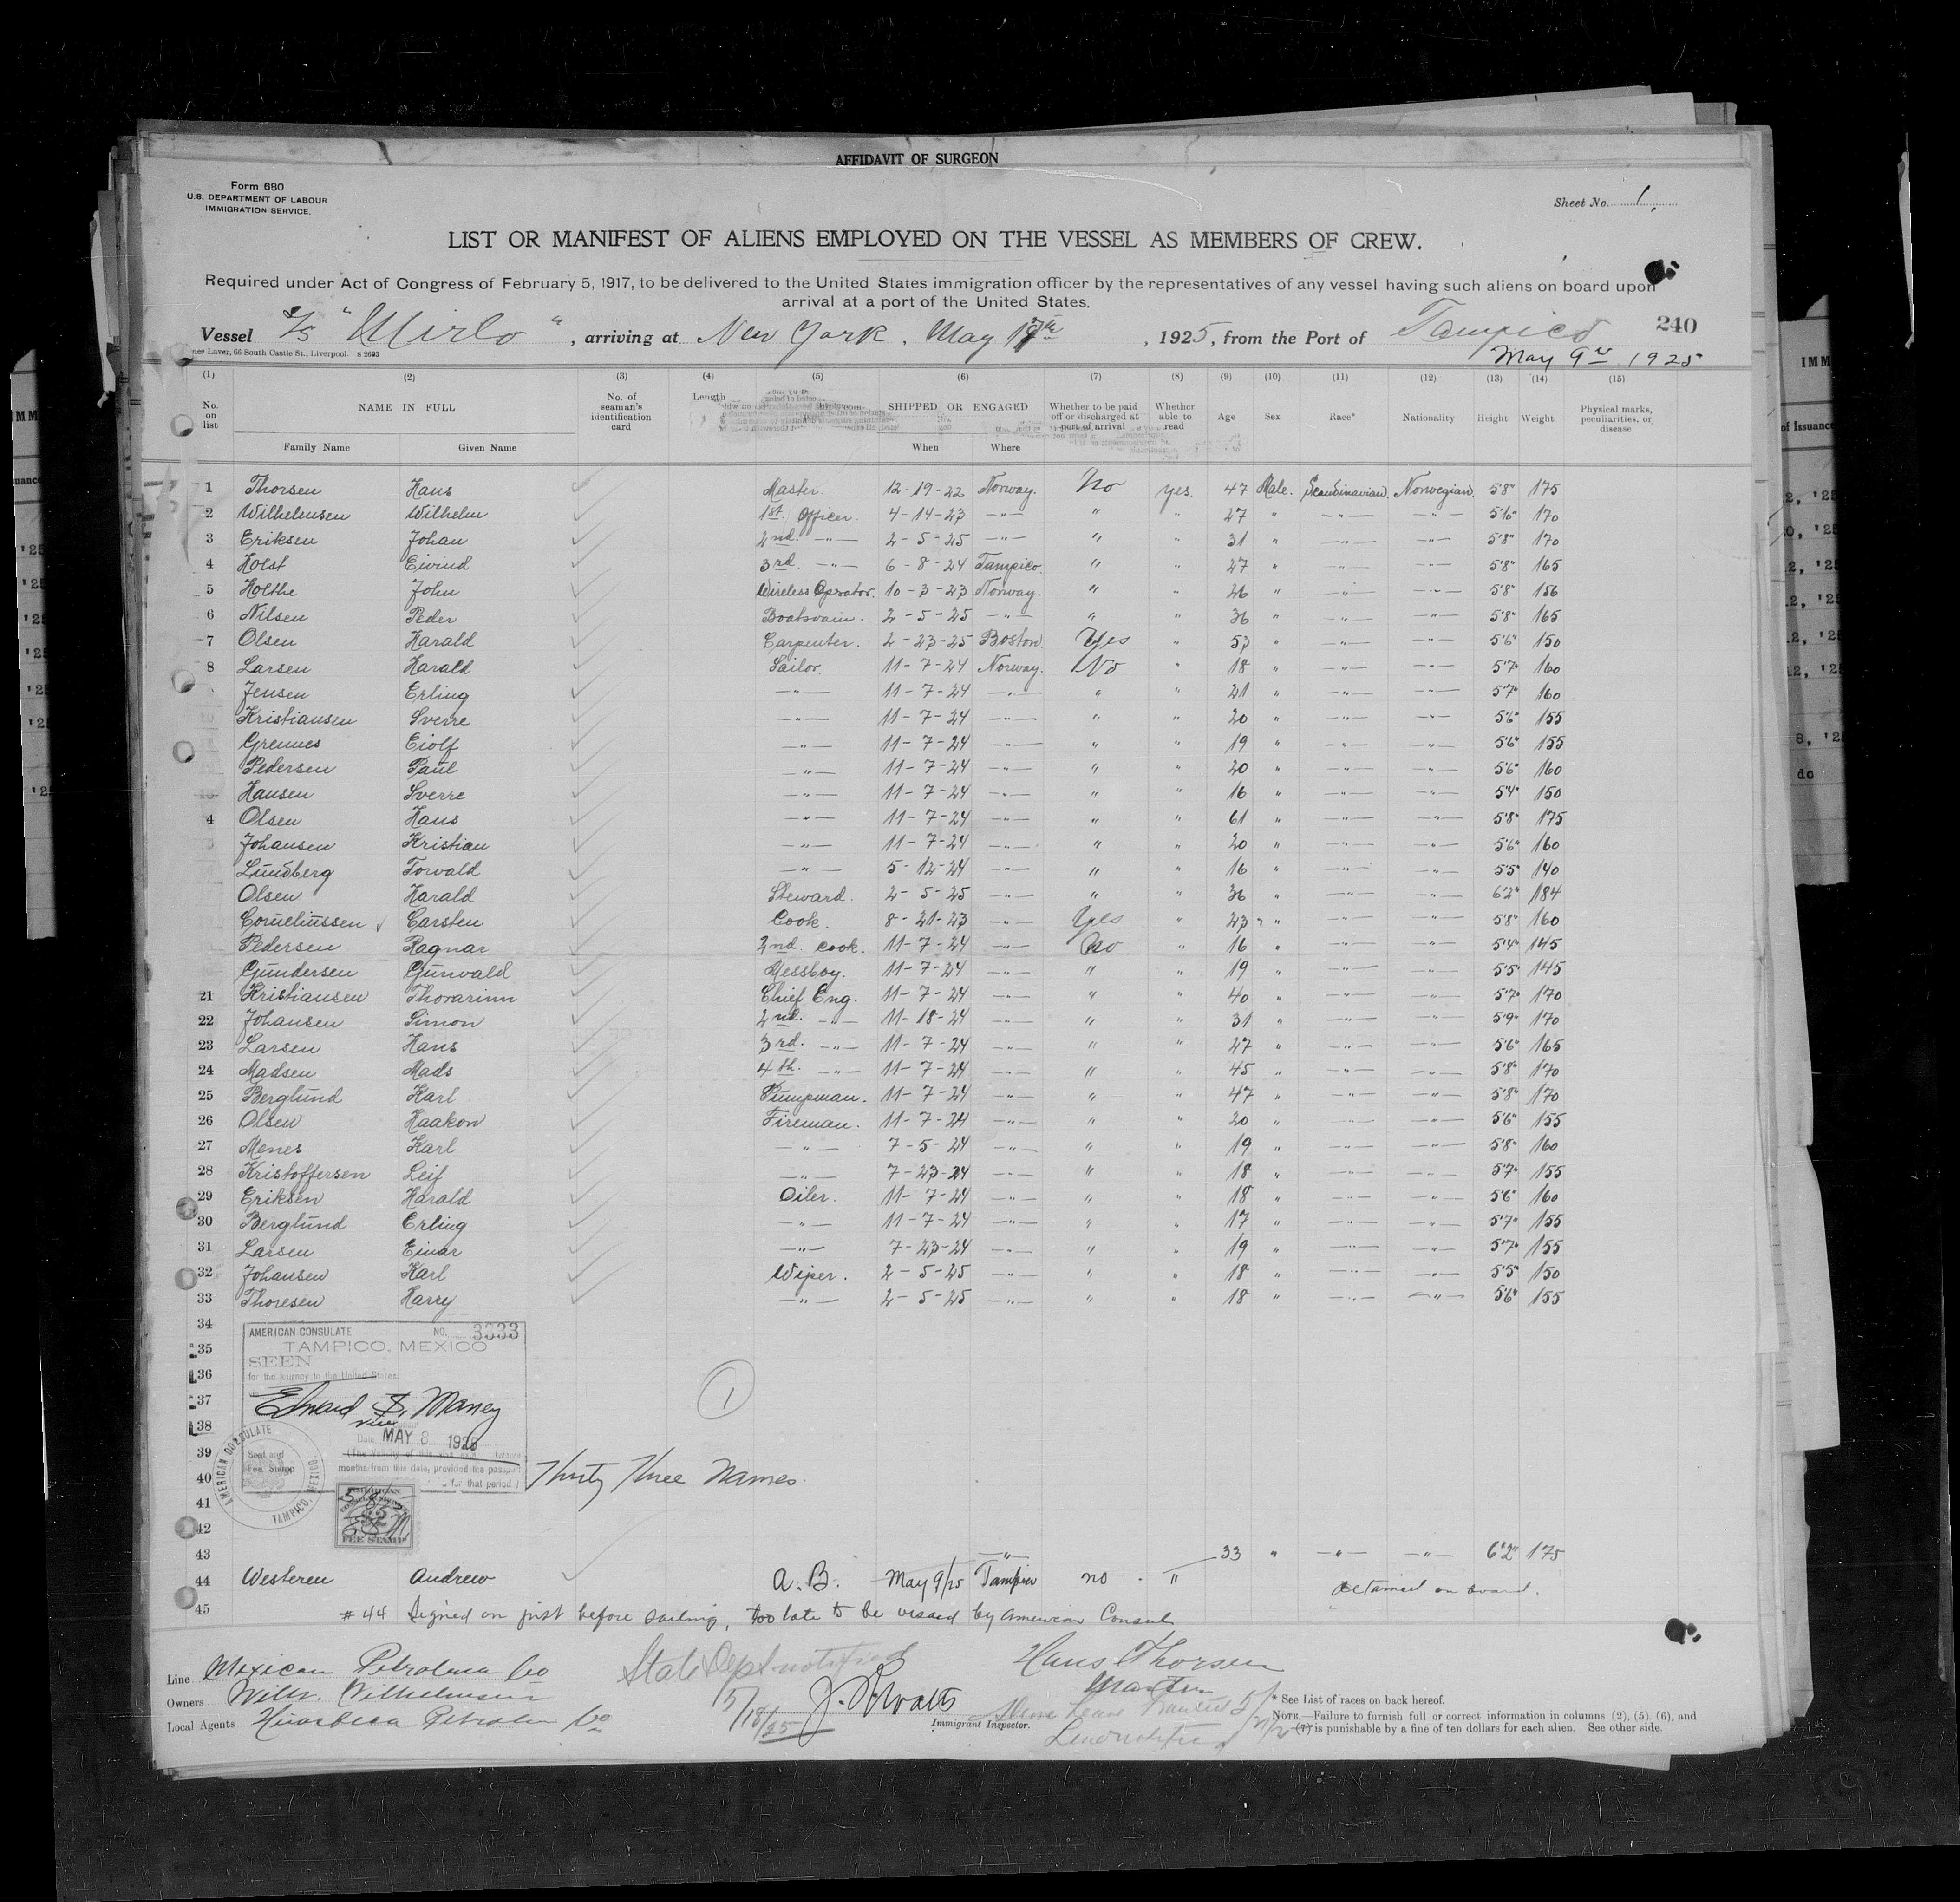 AFFIDAVIT OF SURGEON
Form 680
U.S. DEPARTMENT OF LABOUR
IMMIGRATION SERVICE.
Sheet No. 1.
LIST OR MANIFEST OF ALIENS EMPLOYED ON THE VESSEL AS MEMBERS OF CREW.
Required under Act of Congress of February 5, 1917, to be delivered to the United States immigration officer by the representatives of any vessel having such aliens on board upon
arrival at a port of the United States.
240
Vessel "Mirlo", arriving at New York. May 17th, 1925, from the Port of Tampico
Laver, 66 South Castle St., Liverpool. S 2693
May 9th 1925
(1) (2) (3) (4) (5) (6) (7) (8) (9) (10) (11) (12) (13) (14) (15)
No. on list NAME IN FULL No. of seaman's identification card Length SHIPPED OR ENGAGED Whether to be paid off or discharged at port of arrival Whether able to read Age Sex Race* Nationality Height Weight Physical marks, peculiarities, or disease
Family Name Given Name When Where
1 Thorsen Hans Master. 12-19-22 Norway. No yes. 47 Male. Scandinavian. Norwegian. 5'8" 175
2 Wilhelmsen Wilhelm 1st. Officer. 4-14-23 —"— " " 27 " —"— —"— 5'10" 170
3 Eriksen Johan 2nd. —"— 2-5-25 —"— " " 31 " —"— —"— 5'8" 170
4 Holst Eivind 3rd. —"— 6-8-24 Tampico. " " 27 " —"— —"— 5'8" 165
5 Holthe John Wireless Oprator. 10-3-23 Norway. " " 26 " —"— —"— 5'8" 156
6 Nilsen Peder Boatsvain. 2-5-25 —"— " " 36 " —"— —"— 5'8" 165
7 Olsen Harald Carpenter. 2-23-25 Boston Yes " 53 " —"— —"— 5'6" 150
8 Larsen Harald Sailor. 11-7-24 Norway. No " 18 " —"— —"— 5'7" 160
Jensen Erling —"— 11-7-24 —"— " " 21 " —"— —"— 5'7" 160
Kristiansen Sverre —"— 11-7-24 —"— " " 20 " —"— —"— 5'6" 155
Grennes Eiolf —"— 11-7-24 —"— " " 19 " —"— —"— 5'6" 155
Pedersen Paul —"— 11-7-24 —"— " " 20 " —"— —"— 5'6" 160
Hansen Sverre —"— 11-7-24 —"— " " 16 " —"— —"— 5'4" 150
4 Olsen Hans —"— 11-7-24 —"— " " 61 " —"— —"— 5'8" 175
Johansen Kristian —"— 11-7-24 —"— " " 20 " —"— —"— 5'6" 160
Lundberg Torvald —"— 5-12-24 —"— " " 16 " —"— —"— 5'5" 140
Olsen Harald Steward. 2-5-25 —"— " " 36 " —"— —"— 6'2" 184
Corneliussen Carsten Cook. 8-21-23 —"— Yes " 23 " —"— —"— 5'8" 160
Pedersen Ragnar 2nd. cook. 11-7-24 —"— No " 16 " —"— —"— 5'4" 145
Gundersen Gunvald Messboy. 11-7-24 —"— " " 19 " —"— —"— 5'5" 145
21 Kristiansen Thorarinn Chief Eng. 11-7-24 —"— " " 40 " —"— —"— 5'7" 170
22 Johansen Simon 2nd. —"— 11-18-24 —"— " " 31 " —"— —"— 5'9" 170
23 Larsen Hans 3rd. —"— 11-7-24 —"— " " 27 " —"— —"— 5'6" 165
24 Madsen Mads 4th. —"— 11-7-24 —"— " " 45 " —"— —"— 5'8" 170
25 Berglund Karl Pumpman. 11-7-24 —"— " " 47 " —"— —"— 5'8" 170
26 Olsen Haakon Fireman. 11-7-24 —"— " " 20 " —"— —"— 5'6" 155
27 Menes Karl —"— 7-5-24 —"— " " 19 " —"— —"— 5'8" 160
28 Kristoffersen Leif —"— 7-23-24 —"— " " 18 " —"— —"— 5'7" 155
29 Eriksen Harald Oiler. 11-7-24 —"— " " 18 " —"— —"— 5'6" 160
30 Berglund Erling —"— 11-7-24 —"— " " 17 " —"— —"— 5'7" 155
31 Larsen Einar —"— 7-23-24 —"— " " 19 " —"— —"— 5'7" 155
32 Johansen Karl Wiper. 2-5-25 —"— " " 18 " —"— —"— 5'5" 150
33 Thoresen Harry —"— 2-5-25 —"— " " 18 " —"— —"— 5'6" 155
34
AMERICAN CONSULATE NO. 3333
35 TAMPICO, MEXICO
SEEN
36 for the journey to the United States.
37 Edward S. Maney
38 Vice
Date MAY 8 1925
39 Seal and
Fee Stamp
months from this date, provided the passport
for that period
40 Thirty Three Names.
AMERICAN CONSULATE TAMPICO, MEXICO
1
41
42 FEE STAMP
43 —"— 33 " —"— —"— 6'2" 175
44 Westeren Andrew A.B. May 9/25 Tampico no. " detained on board.
45 #44 Signed on just before sailing, too late to be visaed by American Consul
Line Mexican Petroleum Co
Owners Wilh. Wilhelmsen
Local Agents Huasteca Petroleum Co
State Dept notified
5/18/25
Immigrant Inspector.
Hans Thorsen
Master
* See List of races on back hereof.
NOTE.—Failure to furnish full or correct information in columns (2), (5), (6), and
(7) is punishable by a fine of ten dollars for each alien. See other side.